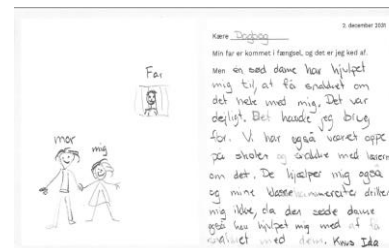 3. december 2021
Kære Dagbog
Min far er kommet i fængsel, og det er jeg ked af.
Men en sød dame har hjulpet
mig til, at få snakket om
det hele med mig. Det var
dejligt. Det havde jeg brug
for. Vi har også været oppe
på skolen og snakke med lærere
om det. De hjælper mig også
og mine klassekammerater driller
mig ikke, da den søde dame
også har hjulpet mig med at få
snakket med dem. Knus Ida
Far
mor
mig